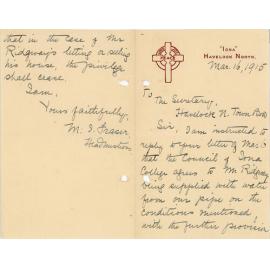 "Iona"
Havelock North.
Mar. 16, 1915
To The Secretary,
Havelock N. Town Board
Sir, I am instructed to
reply to your letter of Mar.
that the Council of Iona
College agrees to Mr Ridgway
being supplied with water
from our pipe on the
conditions mentioned
with the further proviso
that in the case of Mr
Ridgway's letting or selling
his house, the privilege
shall cease.
I am,
Yours faithfully,
M. I. Fraser,
Headmistress